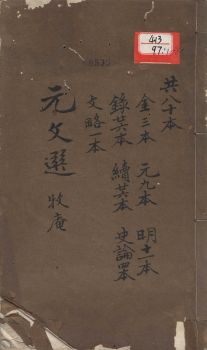 共八十本
金三本 元九本 明十一本
錄共本 續共本 史論四本
文略一本
元文選 牧庵
413